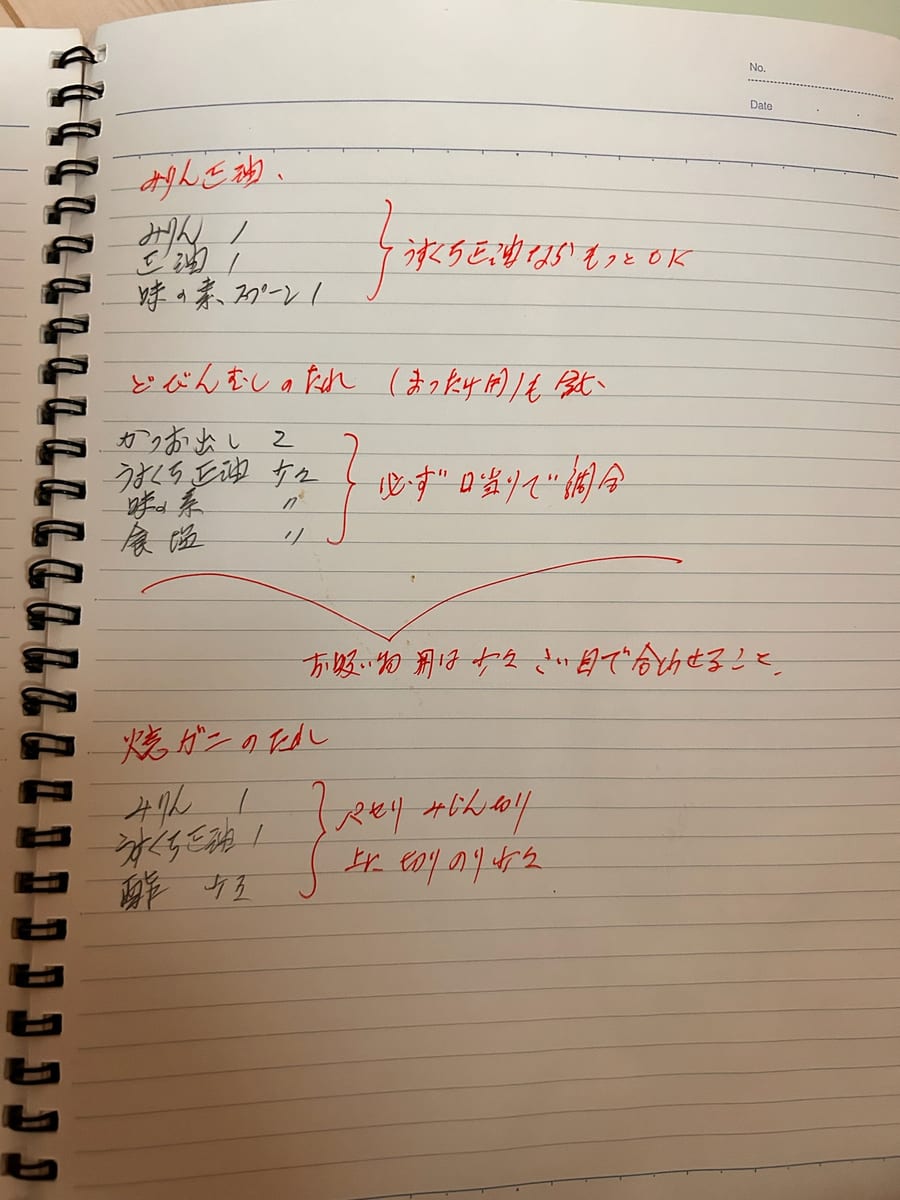 No.
Date
みりん正油、
みりん 1
正油 1
味の素、スプーン1
うすくち正油ならもっとOK
どびんむしのたれ (まったけ用)も
かつお出し 2
うすくち正油 少々
味の素 〃
食塩 〃
必ず口当りで調合
お吸い物用は少々 目で合わせること、
焼ガニのたれ
みりん 1
うすくち正油 1
酢 少々
パセリ みじん切り
上に切りのり少々